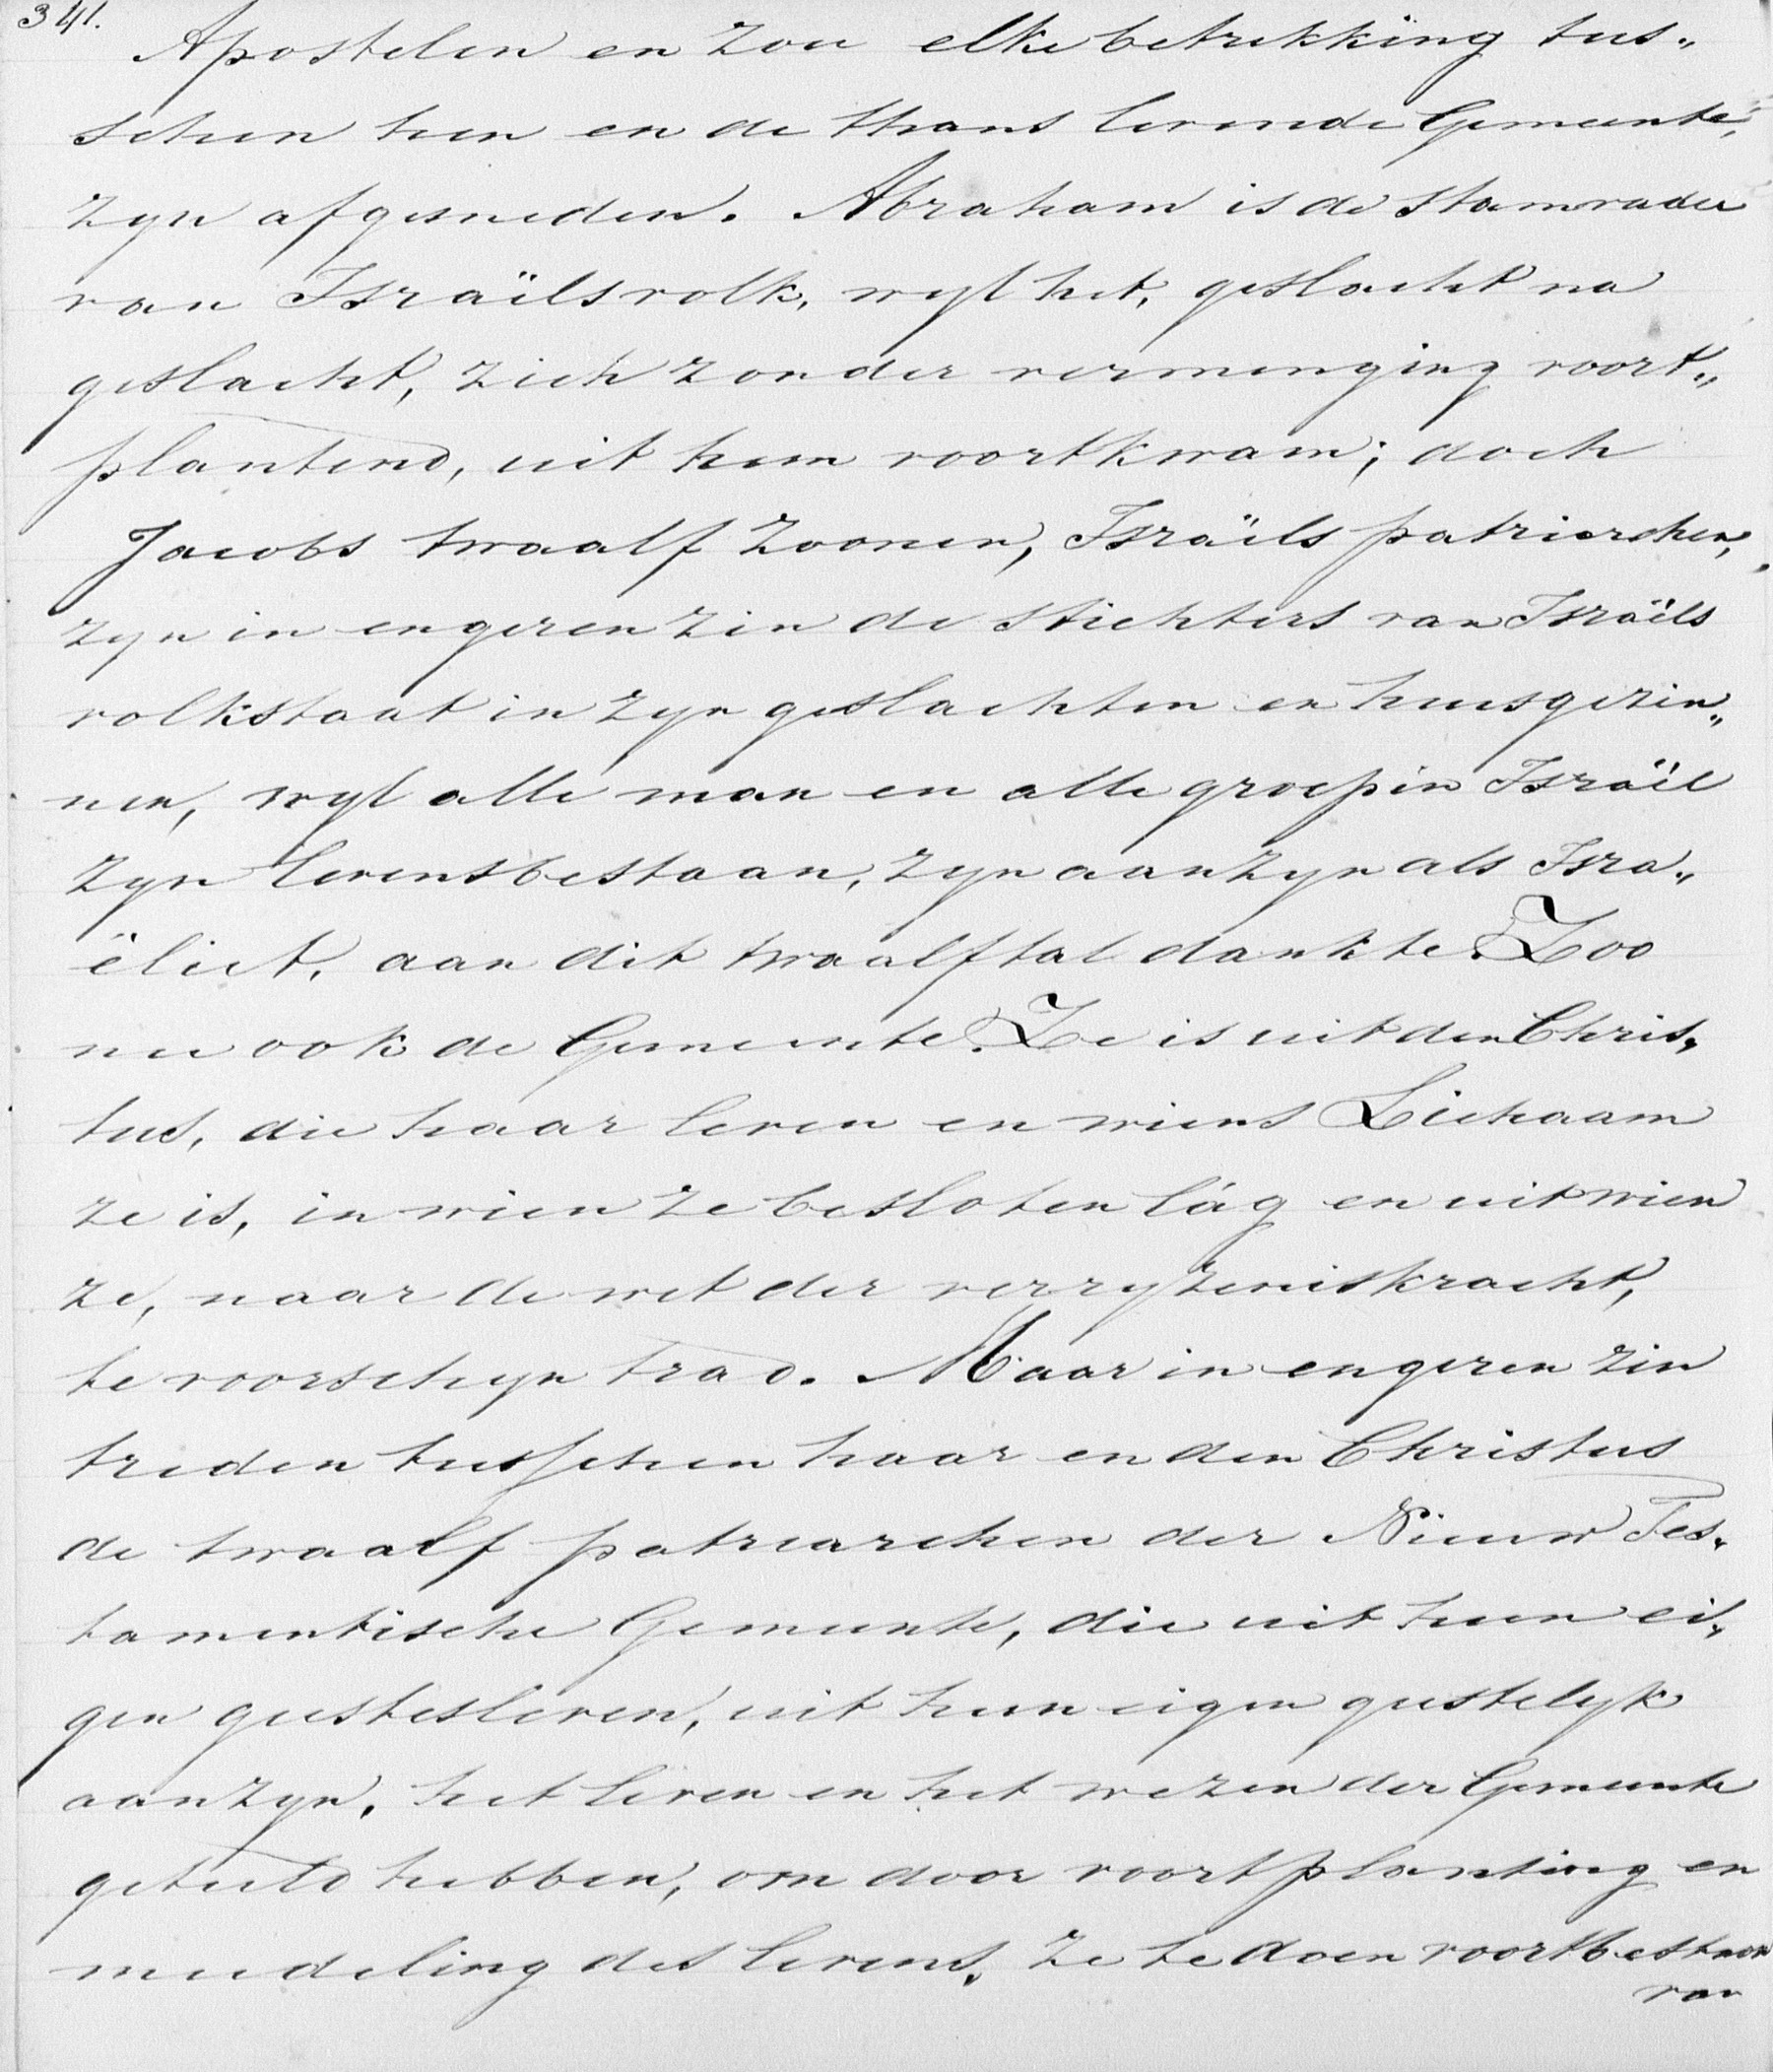 341.
Apostelen en zou elke betrekking tus„
schen hen en de thans levende Gemeente,
zyn afgesneden. Abraham is de stamvader
van Israëls volk, wyl het, geslacht na
geslacht, zich zonder vermenging voort„
plantend, uit hem voortkwam; doch
Jacobs twaalf zoonen, Israëls patriarchen,
zyn in engeren zin de stichters van Israëls
volkstaat in zyn geslachten en huisgezin„
nen, wyl alle man en alle groep in Israël
zyn levensbestaan, zyn aanzyn als Isra„
ëliet, aan dit twaalftal dankte. Zoo
nu ook de Gemeente. Ze is uit den Chris„
tus, die haar leven en wiens Lichaam
ze is, in wien ze besloten lág en uit wien
ze, naar de wet der verryzeniskracht,
te voorschyn trad. Maar in engeren zin
treden tusschen haar en den Christus
de twaalf patriarchen der Nieuw Tes„
tamentische Gemeente, die uit hun ei„
gen geestesleven, uit hun eigen geestelyk
aanzyn, het leven en het wezen der Gemeente
geteeld hebben, om door voortplanting en
meedeling des levens, ze te doen voortbestaan
van